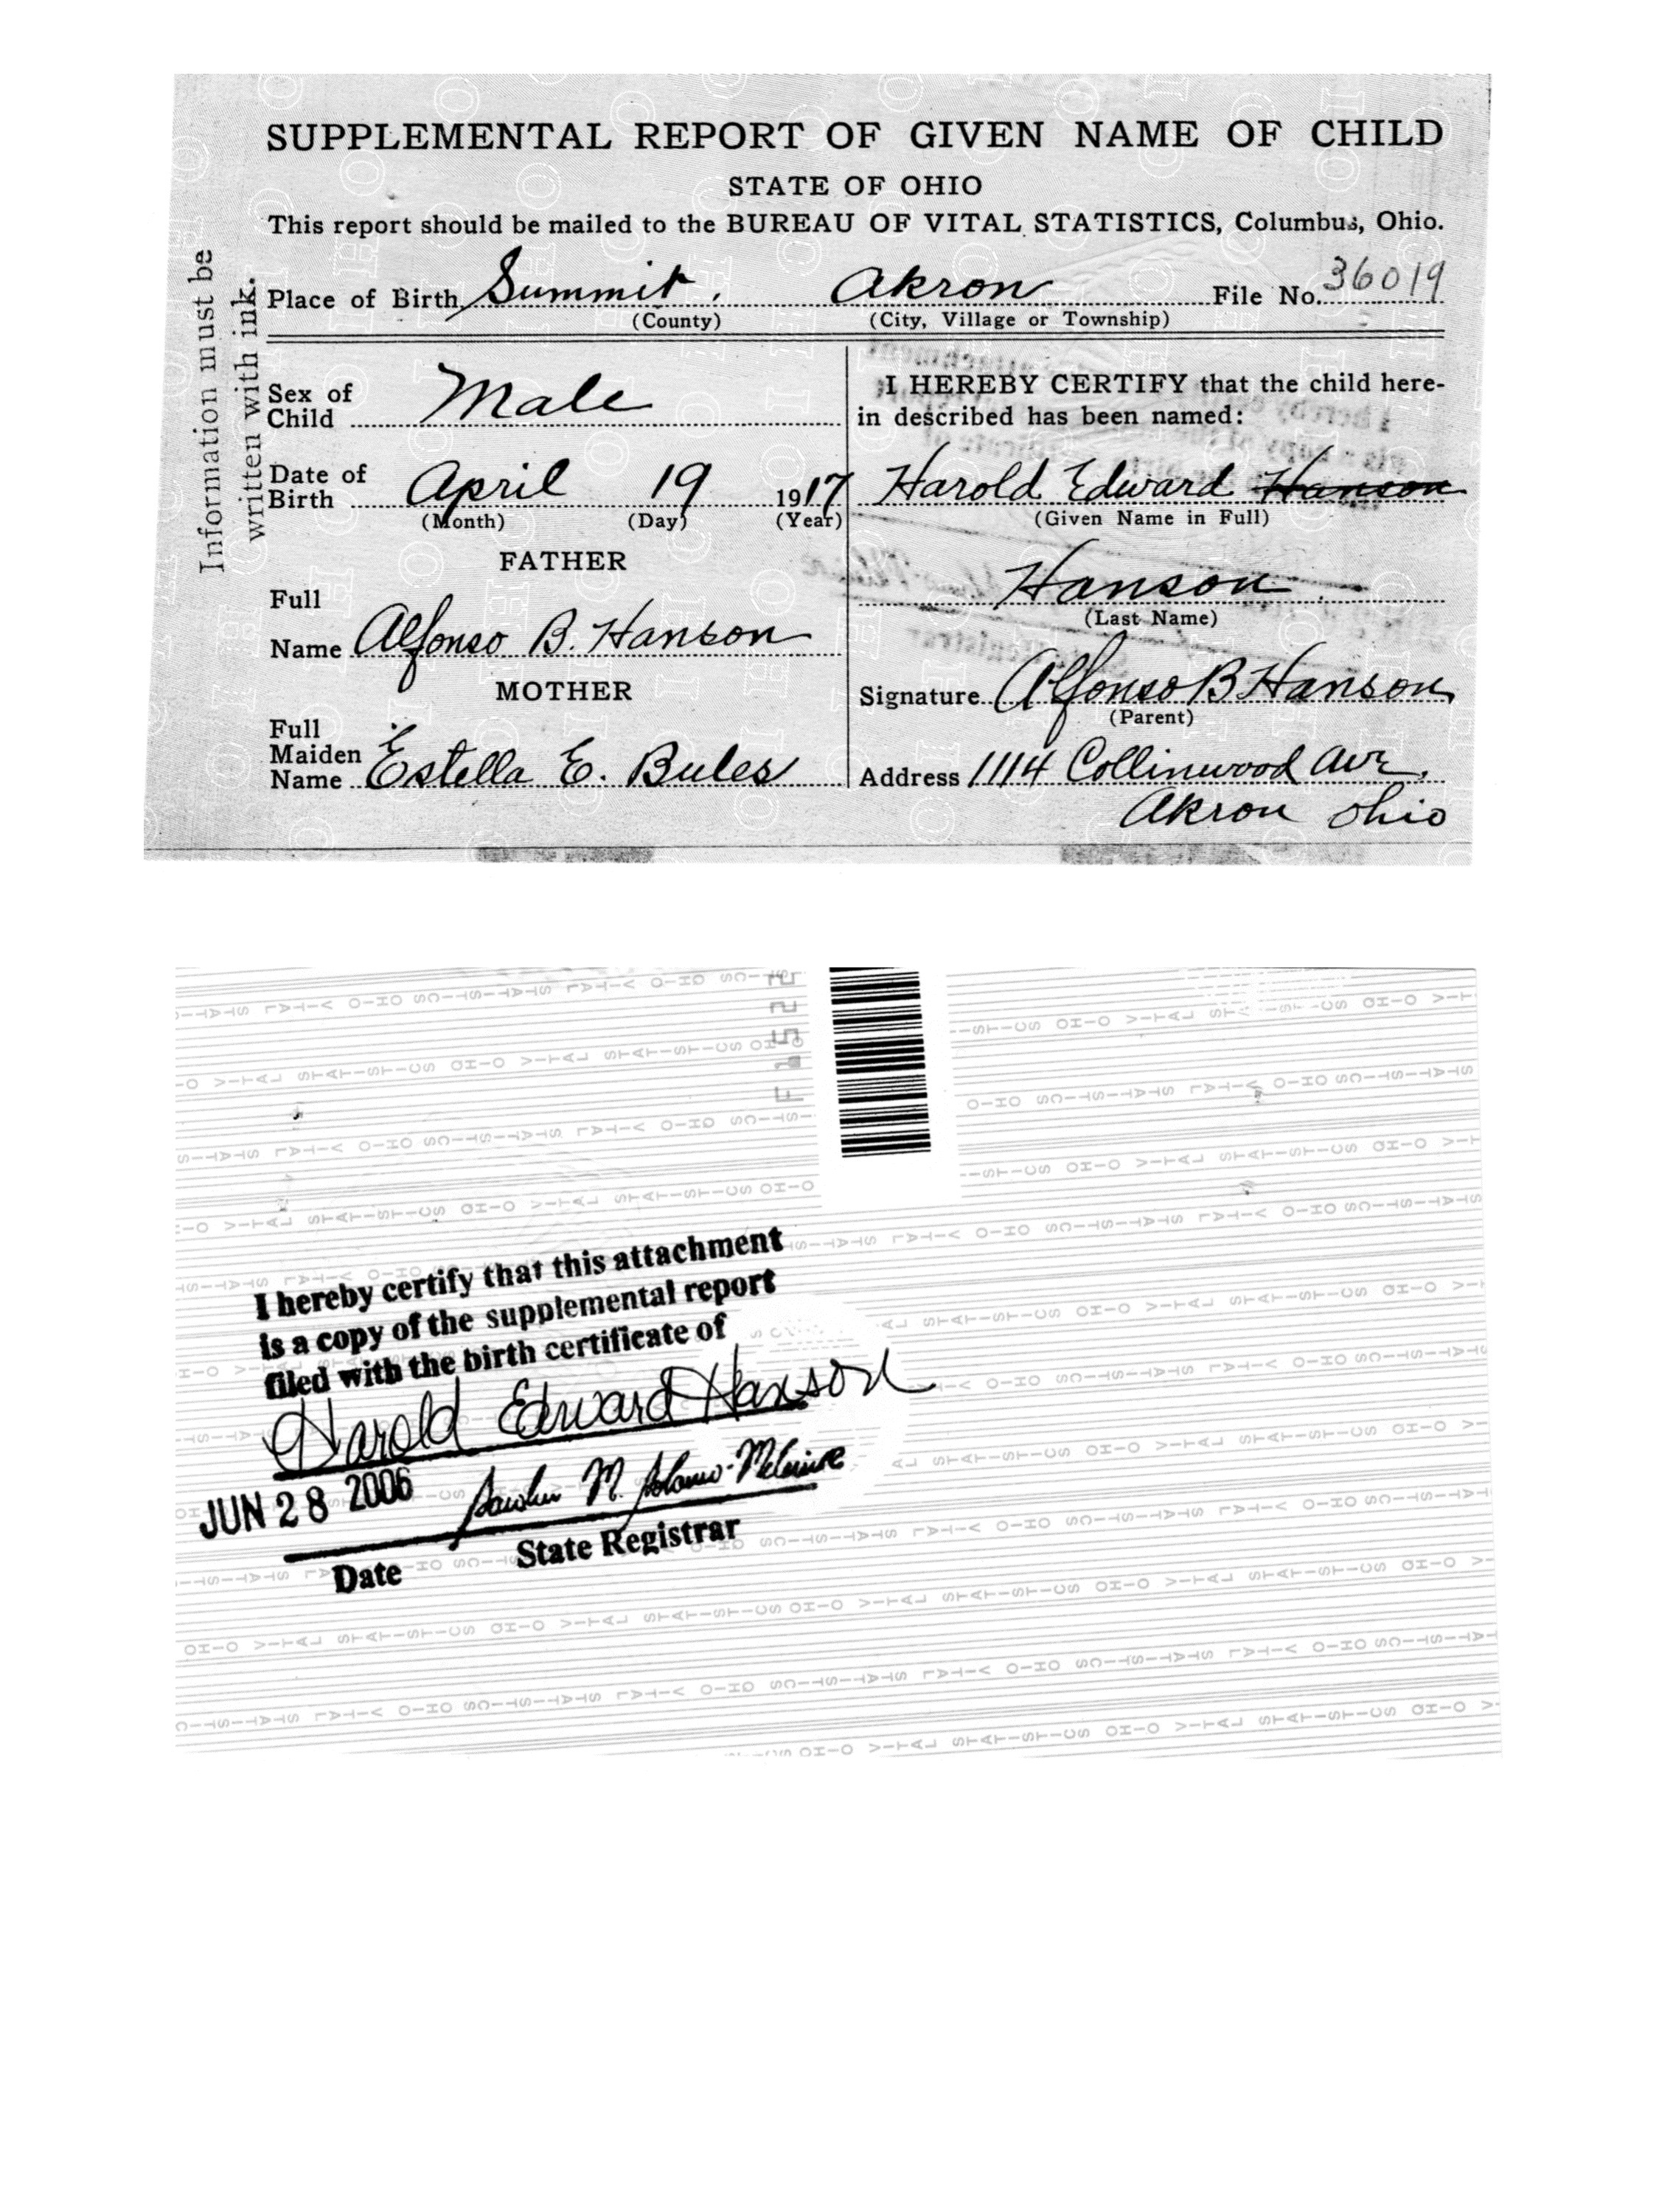 SUPPLEMENTAL REPORT OF GIVEN NAME OF CHILD
STATE OF OHIO
This report should be mailed to the BUREAU OF VITAL STATISTICS, Columbus, Ohio.
Information must be
written with ink.
Place of Birth Summit, Akron File No. 36019
(County) (City, Village or Township)
Sex of
Child Male
Date of
Birth April 19 1917
(Month) (Day) (Year)
FATHER
Full
Name Alfonso B. Hanson
MOTHER
Full
Maiden
Name Estella E. Bules
I HEREBY CERTIFY that the child here-
in described has been named:
Harold Edward Hanson
(Given Name in Full)
Hanson
(Last Name)
Signature Alfonso B Hanson
(Parent)
Address 1114 Collinwood Ave.
Akron Ohio
I hereby certify that this attachment
is a copy of the supplemental report
filed with the birth certificate of
Harold Edward Hanson
JUN 28 2006
Date State Registrar